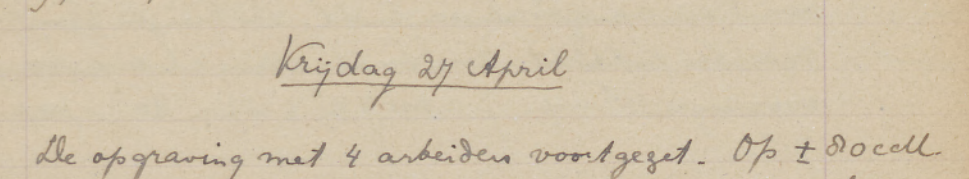 Vrijdag 27 April
De opgraving met 4 arbeiders voortgezet. Op ± 80 cM.